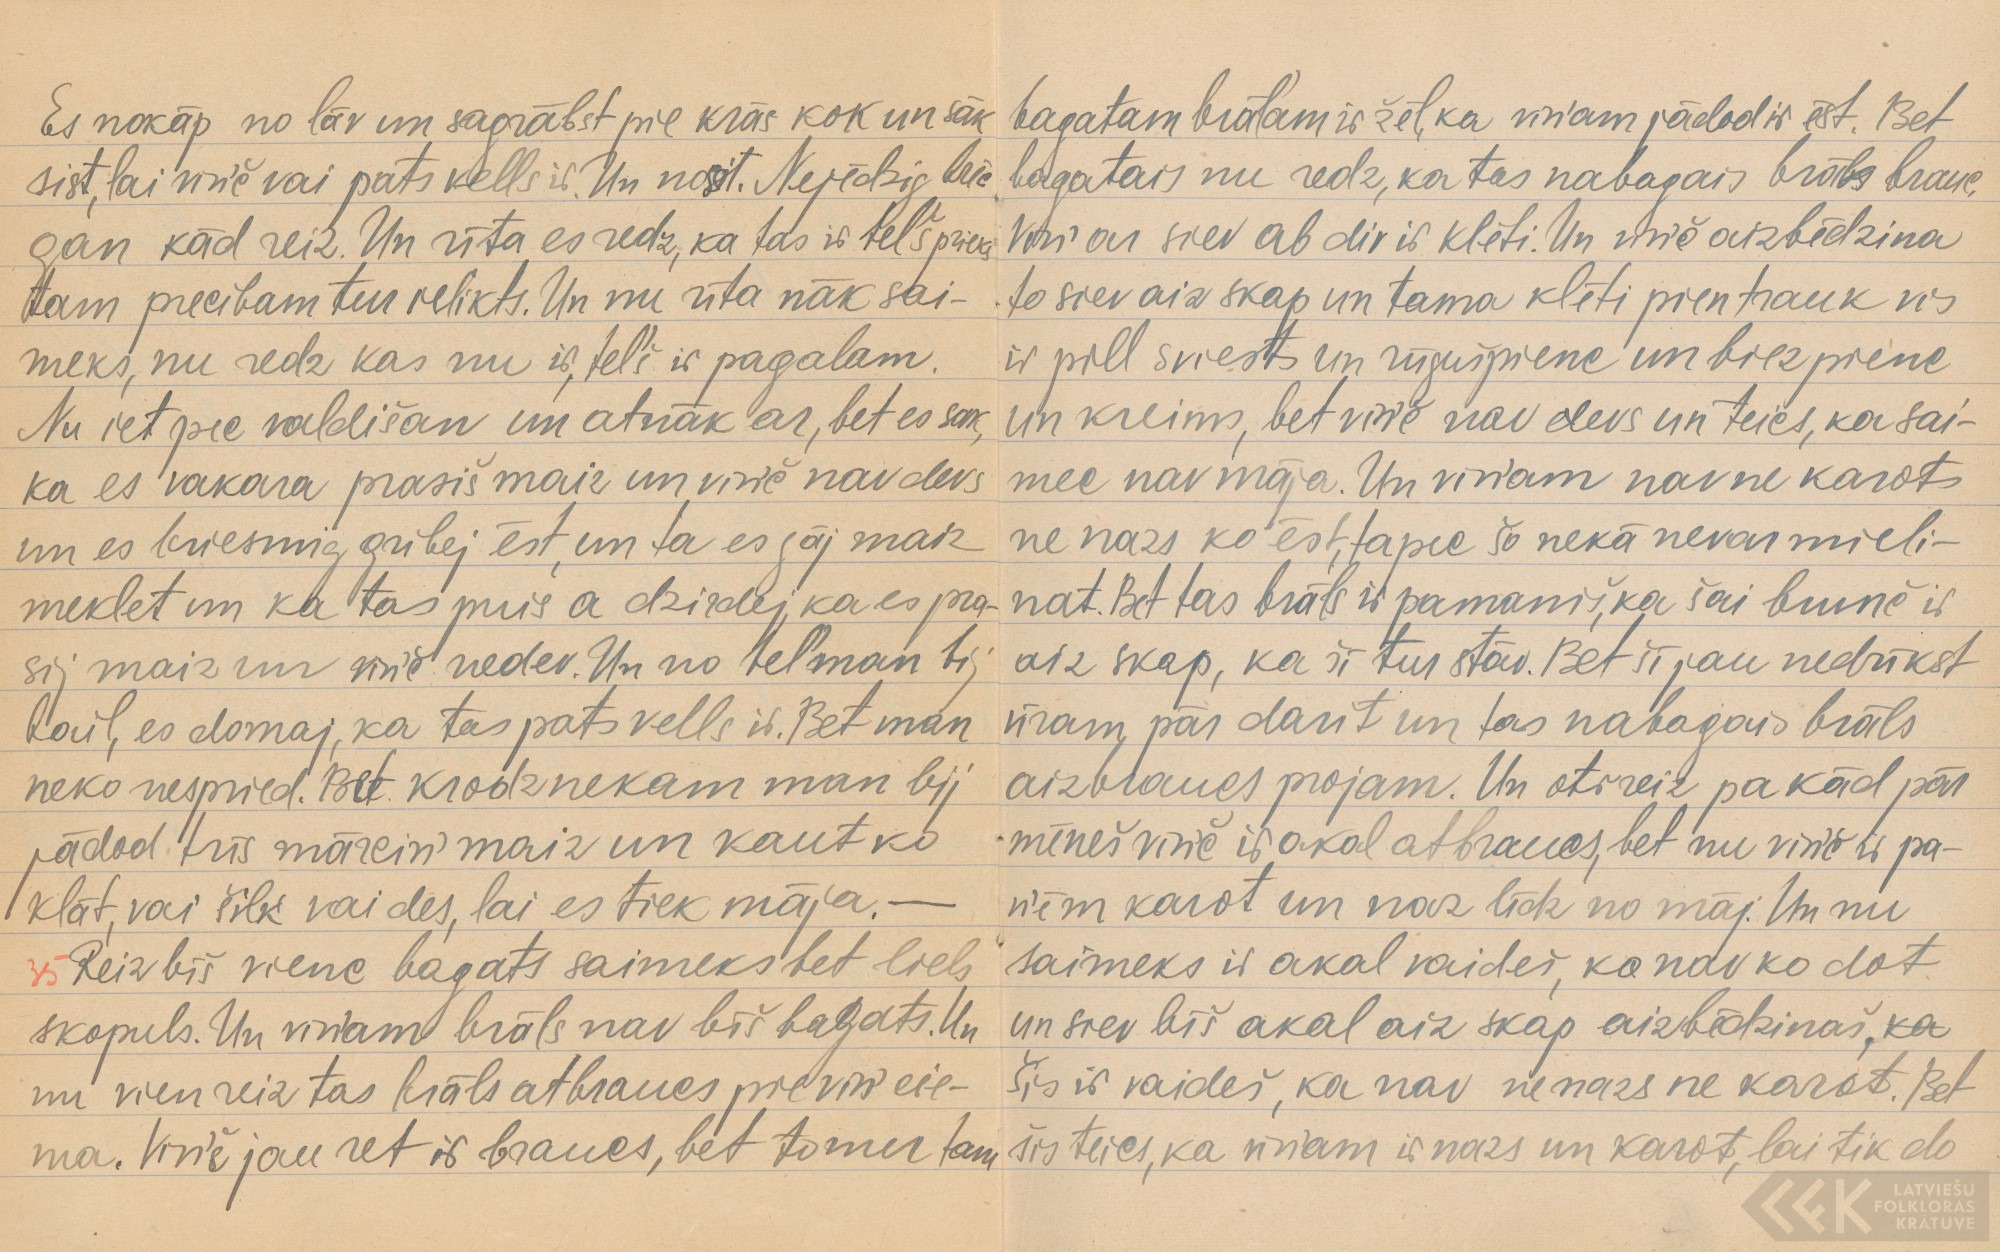 Es nokāp no lāv un sagrābst pie krās kok un sāk
sist, lai viņč vai pats vells ir. Un nosit. Nejēdzig brēc
gan kād reiz. Un rīta es redz, ka tas ir teļš prieks
tam precibam tur ielikts. Un nu rīta nāk sai-
meks, nu redz kas nu ir, teļš ir pagalam.
Nu iet pec valdišan un atnāk ar, bet es sak,
ka es vakara prasiš maiz un viņč nav devs
un es briesmig gribej ēst, un ta es gāj maiz
meklet un ka tas puis a dzirdej, ka es pra-
sij maiz un viņč nedev. Un no teļ man bij
bail, es domaj, ka tas pats vells ir. Bet man
neko nespried. Bet krodznekam man bij
jādod trīs mārciņ maiz un kaut ko
klāt, vai šilķ vai des, lai es tiek māja. —
35 Reiz bīš viene bagats saimeks bet liels
skopuls. Un viņam brāls nav bīš bagats. Un
nu vien reiz tas brāls atbraucs pie viņ cie-
ma. Viņč jau ret ir braucs, bet tomer tam
bagatam brāļam ir žēl, ka viņam jādod ir ēst. Bet
bagatais nu redz, ka tas nabagais brāls brauc.
Viņ ar siev ab div ir klēti. Un viņč aizbēdzina
to siev aiz skap un tama klēti pientrauk vis
ir pill sviests un rūgušpiene un biezpiene
un kreims, bet viņč nav devs un teics, ka sai-
mec nav māja. Un viņam nav ne karots
ne nazs ko ēst, tapec šo nekā nevar mieli-
nat. Bet tas brāls ir pamaniš, ka šai brunč ir
aiz skap, ka šī tur stāv. Bet šī jau nedrīkst
vīram pār darit un tas nabagais brāls
aizbraucs projam. Un otr reiz pa kād pār
mēneš viņč ir akal atbraucs, bet nu viņč ir pa-
ņēm karot un naz līdz no māj. Un nu
saimeks ir akal vaideš, ka nav ko dot
un siev bīš akal aiz skap aizbēdzinaš, ka
šis ir vaideš, ka nav ne nazs ne karot. Bet
šis teics, ka viņam ir nazs un karot, lai tik do
LATVIEŠU
FOLKLORAS
KRATUVE